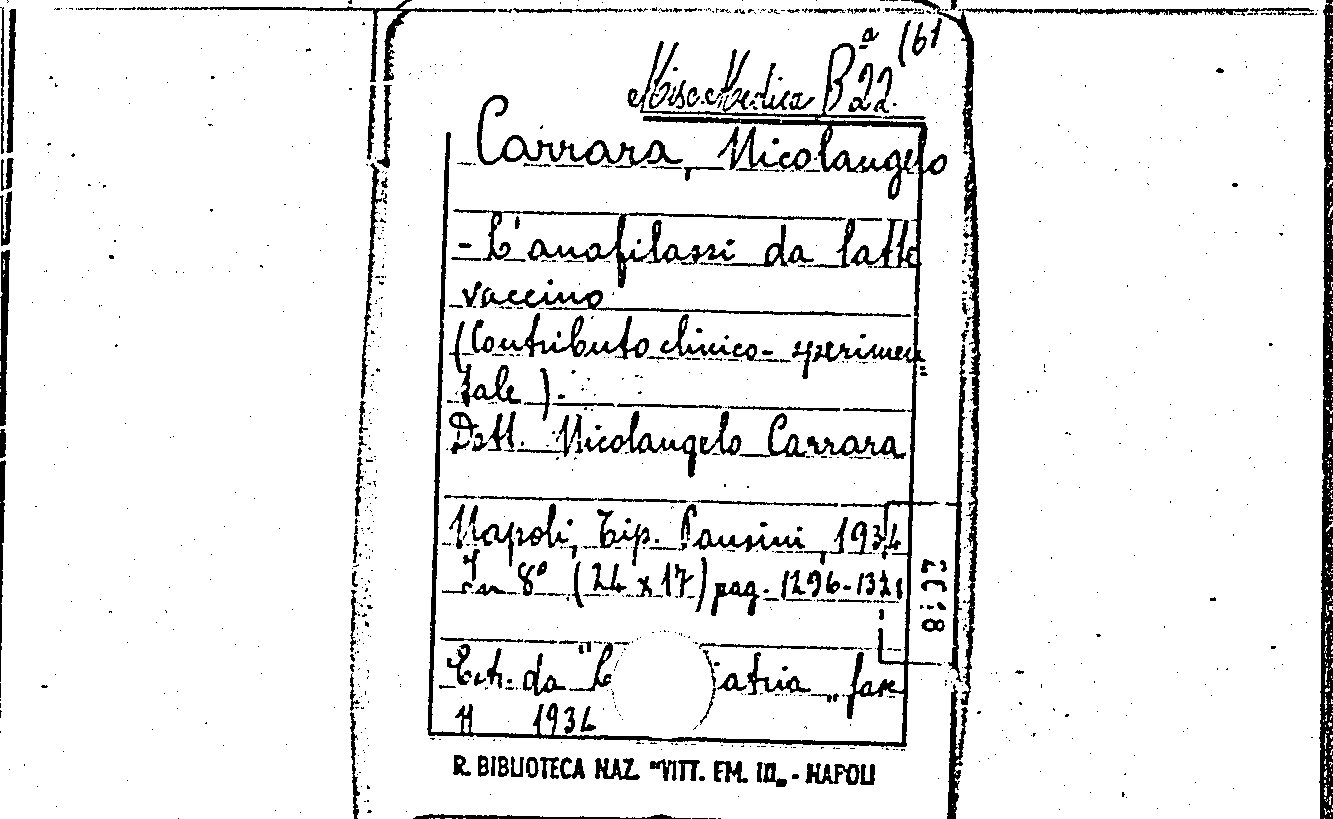 Misc. Medica B.ª 22 (61
Carrara, Nicolangelo
- L'anafilassi da latte
vaccino
(Contributo clinico-sperimen"
tale).
Dott. Nicolangelo Carrara
Napoli, Tip. Pansini, 1934
In 8° (24 x 17) pag. 1296-132
Estr. da "L iatria„ fasc
11 1934
R. BIBLIOTECA NAZ. "VITT. EM. III„ - NAPOLI